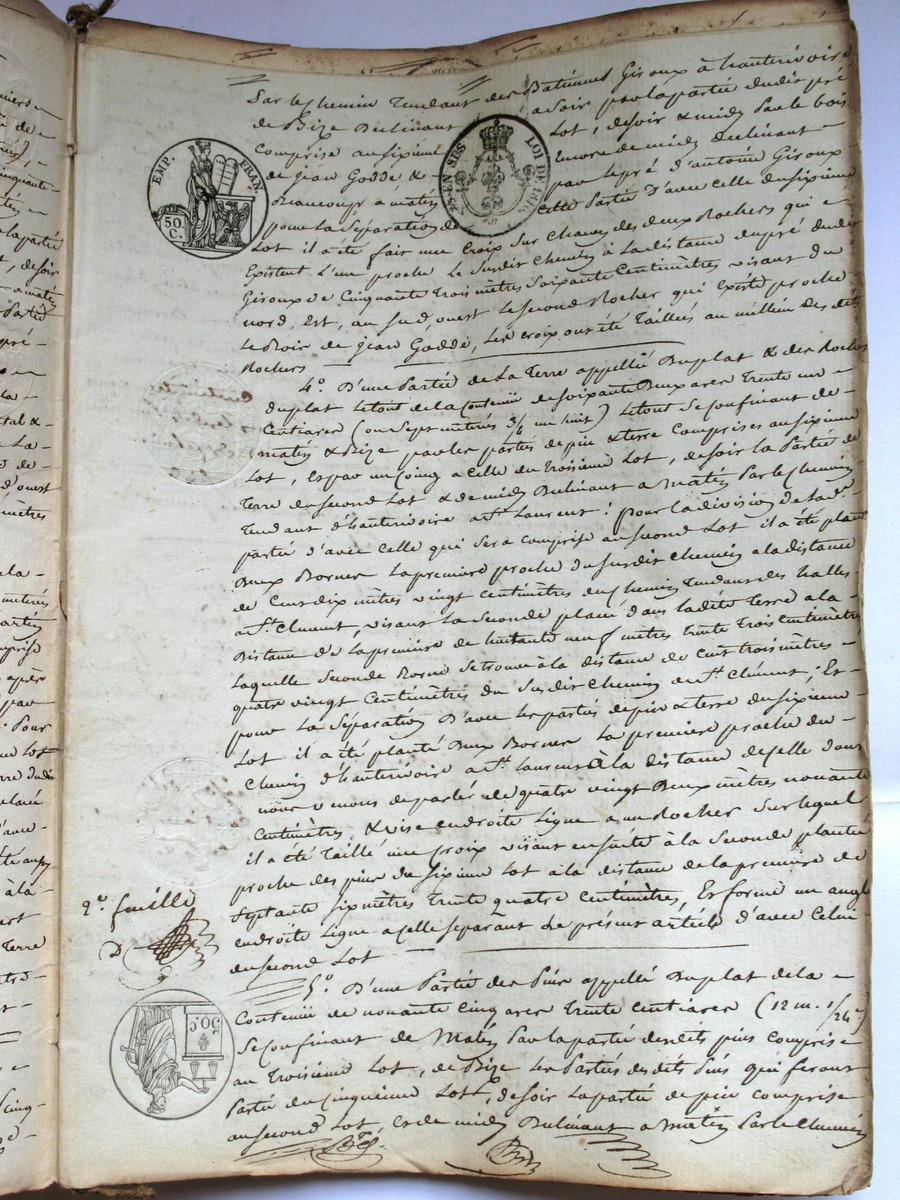 Sur le chemin tendant des Bâtiment Giroux à hauterivoire
de Bize Déclinant à soir par la partie dudit pré
comprise au sixieme Lot, de soir & midi par le bois
de jean Godde & encore de midi Déclinant
beaucoup à matin par le pré d'antoine Giroux
EMP. FRAN.
50 C.
LOI DE 1816
pour la Séparation de cette Partie D'avec celle du sixieme
Lot il a été fait une Croix Sur Chacun des deux Rochers qui
Existent L'une proche Le Susdit Chemin à la distance du pré dudit
Giroux de Cinquante trois mètres Soixante Centimètres visant du
nord, Est, au Sud, ouest Le second Rocher qui Existe proche
Le Bois de jean Godde, Les croix ont été Taillées au milieu des dits
Rochers
4.° D'une Partie de La Terre appellée Duplat & des Rochers
duplat Le tout de la Contenue de soixante Deux ares Trente un
Centiares (ou Sept meterés 3/4 un huit) Le tout Se Confinant de
matin & Bize par les parties de pin & terre Comprises au sixieme
Lot, Et par un Coing à Celle du troisieme Lot, de soir La Partie de
Terre du second Lot & de midi Déclinant à Matin Par le Chemin
Tendant d'hauterivoire à S.t Laurent : pour la division de lad.e
partie d'avec Celle qui Sera comprise au second Lot il a été planté
Deux Bornes La premiere proche du Susdit chemin à la distance
de Cent dix mètres vingt Centimètres du Chemin Tendant des halles
à S.t Clément, visant La Seconde placée dans ladite Terre à la
Distance de La premiere de huitante neuf mètres trente Trois Centimètres
Laquelle Seconde Borne Se trouve à la distance de Cent trois mètres
quatre vingt Centimètres du Susdit Chemin à S.t Clément ; Et
pour La Séparation D'avec Les parties de pin & terre du sixieme
Lot il a été planté Deux Bornes La premiere proche du
Chemin d'hauterivoire à S.t Laurent à la distance de Celle dont
nous venons de parler de quatre vingt Deux mètres nonante
Centimètres, & vise en droite Ligne à un Rocher Sur lequel
il a été Taillé une Croix visant en suite à La Seconde plantée
proche des pins du sixieme Lot à la distance de La premiere de
Septante Six mètres Trente quatre Centimètres, Et forme un angle
en droite Ligne à Celle Separant Le présent article d'avec Celui
du second Lot
2.e feuille
50 C.
5.° D'une Partie des Pins appellée Duplat de la
Contenue de nonante Cinq ares Trente Centiares (12 m. 1/24.e)
Se Confinant de Matin Par la partie desdits pins Comprise
au Troisieme Lot, de Bize Les Parties desdits Pins qui feront
Partie du Cinquieme Lot, de soir La partie de pin Comprise
au second Lot, Et de midi Déclinant à Matin Par le Chemin